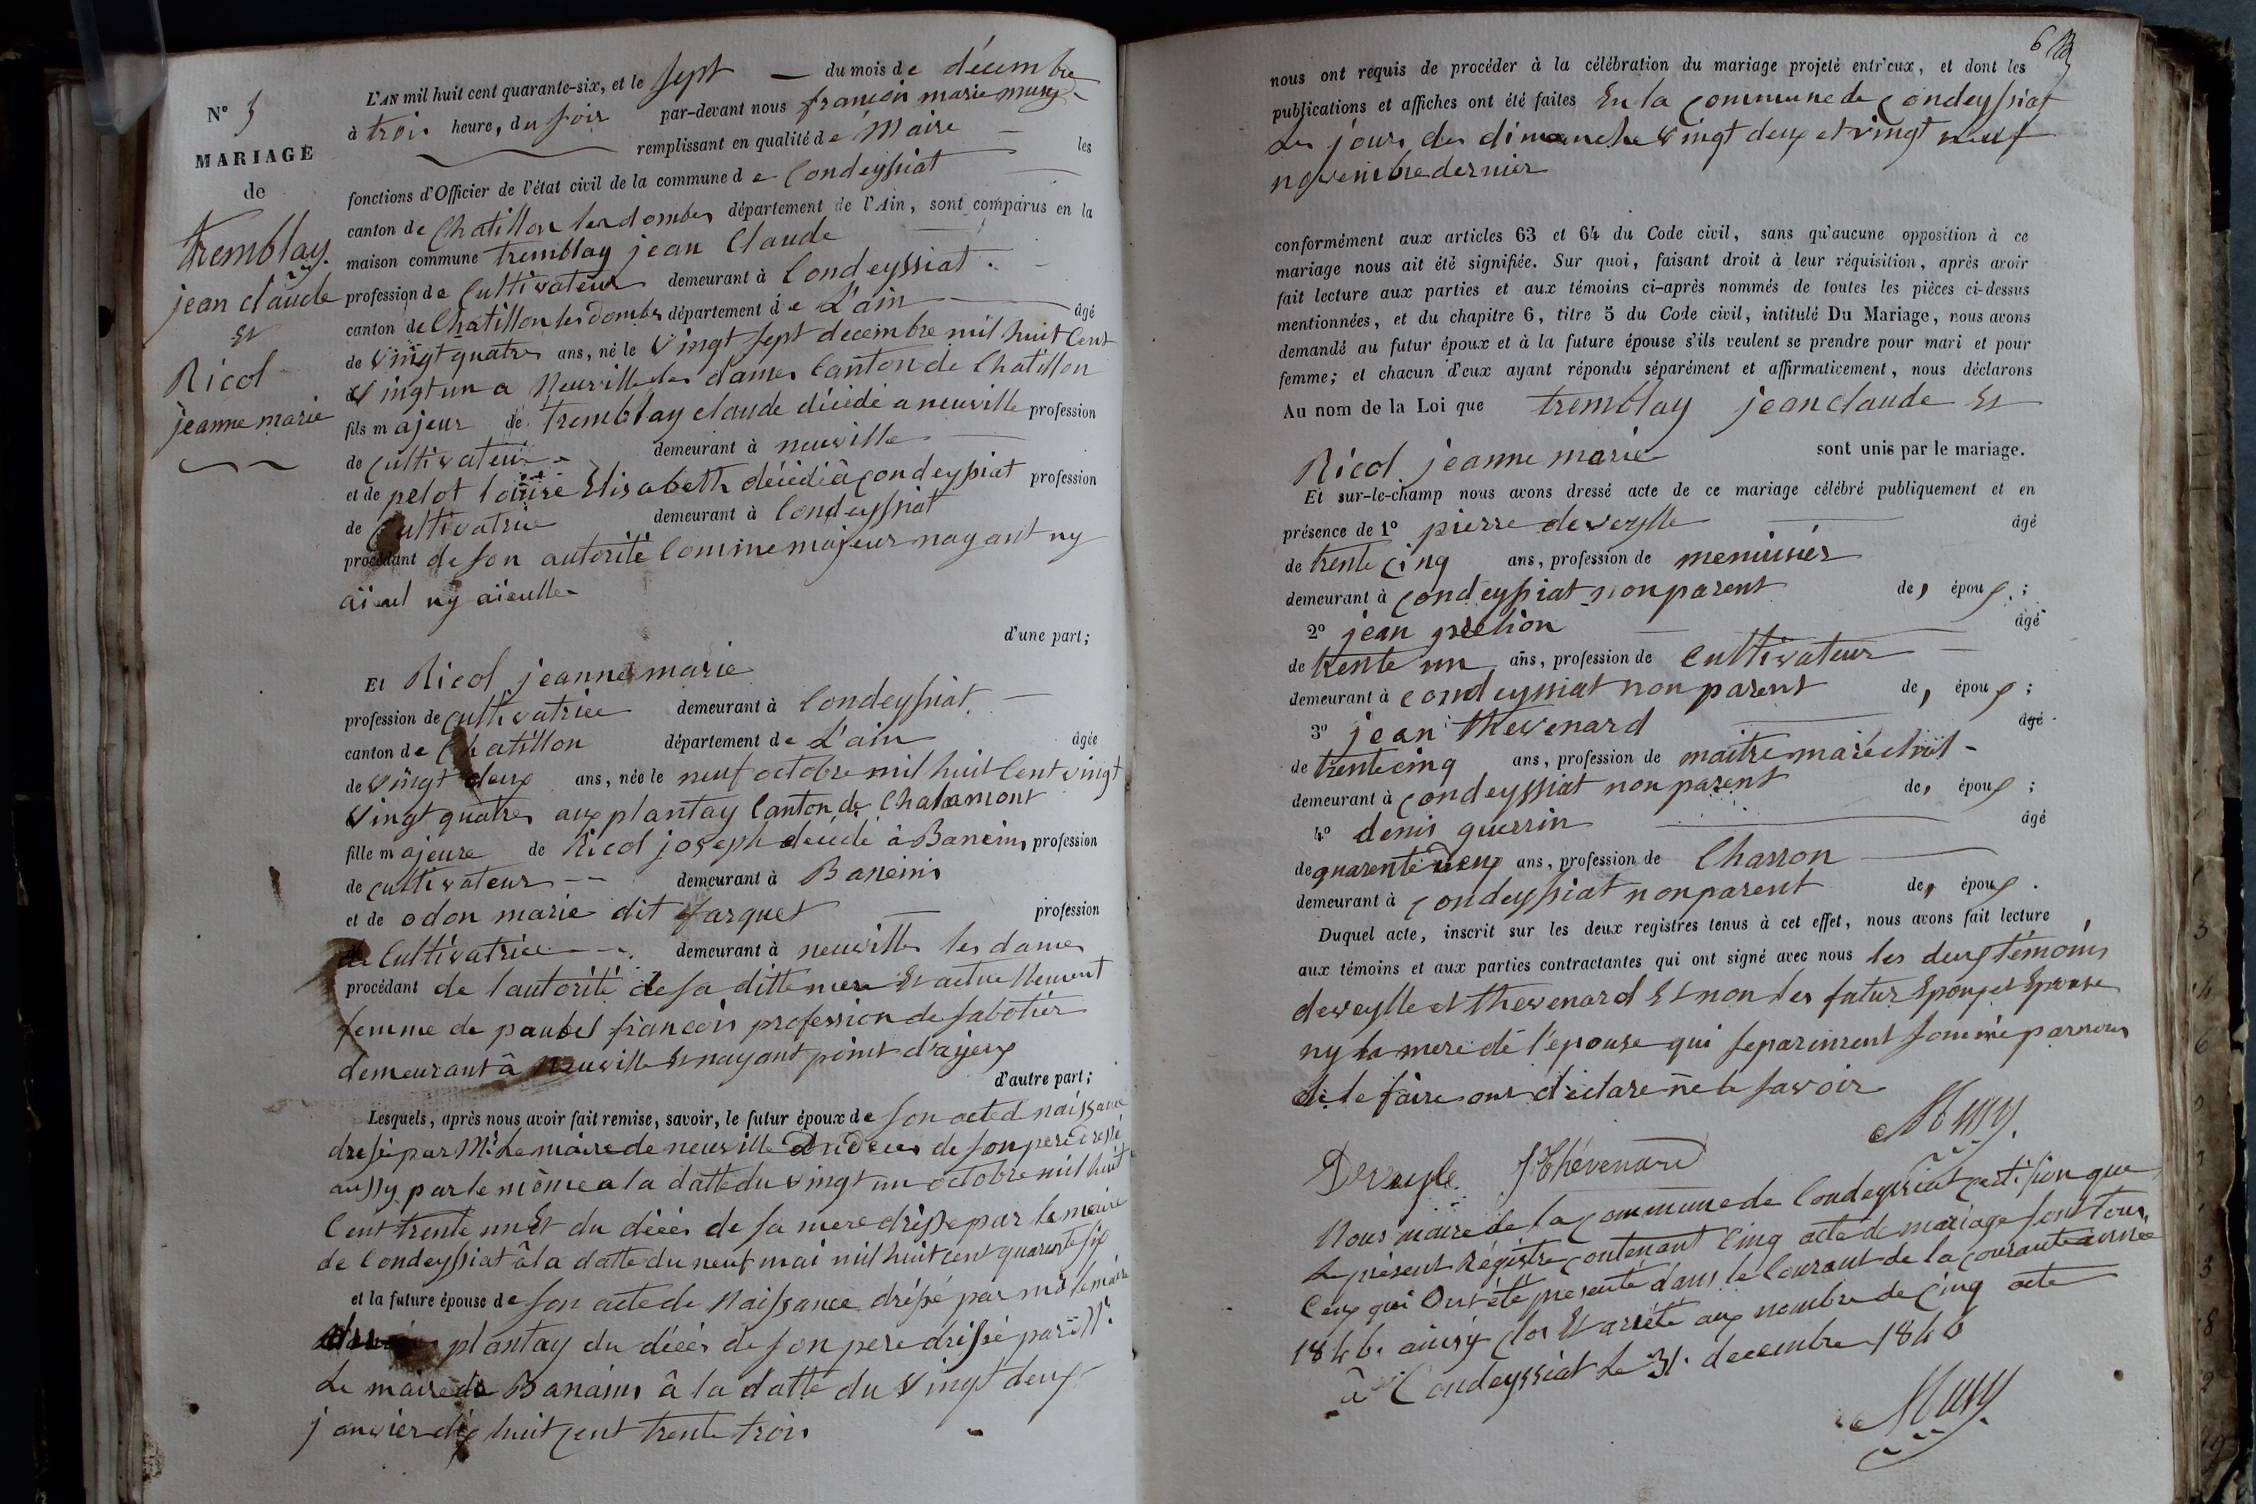 N° 5
MARIAGE
de
tremblay
jean claude
Et
Ricol
jeanne marie
L'AN mil huit cent quarante-six, et le sept — du mois de décembre
à trois heure, du soir par-devant nous françois marie mury
remplissant en qualité de Maire — les
fonctions d'Officier de l'état civil de la commune de Condeyssiat
canton de Chatillon les dombes département de l'Ain, sont comparus en la
maison commune tremblay jean Claude
profession de Cultivateur demeurant à Condeyssiat
canton de Chatillon les Dombes département de L'ain — âgé
de vingt quatres ans, né le vingt sept decembre mil huit Cent
vingt un a Neuville les dames Canton de Chatillon
fils majeur de tremblay claude décédé a neuville profession
de cultivateur demeurant à neuville
et de pelot louise Elisabeth décédé à Condeyssiat profession
de Cultivatrice demeurant à Condeyssiat
procédant de son autorité Comme majeur nayant ny
aieul ny aieulle
d'une part;
Et Ricol jeanne marie
profession de cultivatrice demeurant à Condeyssiat —
canton de Chatillon département de L'ain âgée
de vingt deux ans, née le neuf octobre mil huit Cent vingt
vingt quatres aux plantay Canton de Chalamont
fille majeure de Ricol joseph decédé à Baneins profession
de cultivateur -- demeurant à Baneins
et de odon marie dit farquet — profession
de Cultivatrice --- demeurant à neuville les dames
procédant de lautorité de sa ditte mere Et actuellement
femme de paubel françois profession de sabotier
demeurant à Neuville Et nayant point d'ayeux
d'autre part;
Lesquels, après nous avoir fait remise, savoir, le futur époux de son acte d naissance
dressé par Mr. Le maire de neuville du deces de son pere dressé
aussy par le même a la datte du vingt un octobre mil huit
Cent trente un Et du décés de sa mere dressé par le maire
de Condeyssiat à la datte du neuf mai mil huit cent quarente six
et la future épouse de son acte de Naissance dréssé par mr le maire
plantay du décés de son pere dressé par Mr.
Le maire de Banains â la datte du vingt deux
janvier dix huit cent trente trois
6
nous ont requis de procéder à la célébration du mariage projeté entr'eux, et dont les
publications et affiches ont été faites En la Commune de Condeyssiat
Les jours des dimanche vingt deux et vingt neuf
novembre dernier
conformément aux articles 63 et 64 du Code civil, sans qu'aucune opposition à ce
mariage nous ait été signifiée. Sur quoi, faisant droit à leur réquisition, après avoir
fait lecture aux parties et aux témoins ci-après nommés de toutes les pièces ci-dessus
mentionnées, et du chapitre 6, titre 5 du Code civil, intitulé Du Mariage, nous avons
demandé au futur époux et à la future épouse s'ils veulent se prendre pour mari et pour
femme; et chacun d'eux ayant répondu séparément et affirmativement, nous déclarons
Au nom de la Loi que tremblay jean claude Et
Ricol jeanne marie sont unis par le mariage.
Et sur-le-champ nous avons dressé acte de ce mariage célébré publiquement et en
présence de 1° pierre deveylle — âgé
de trente cinq ans, profession de menuisier
demeurant à Condeyssiat non parent des époux;
2° jean — âgé
de trente un ans, profession de Cultivateur —
demeurant à Condeyssiat non parent des époux;
3° jean thevenard — âgé
de trente cinq ans, profession de maitre maréchal -
demeurant à Condeyssiat non parent des époux;
4° denis guerrin — âgé
de quarente deux ans, profession de Charron —
demeurant à Condeyssiat non parent des époux.
Duquel acte, inscrit sur les deux registres tenus à cet effet, nous avons fait lecture
aux témoins et aux parties contractantes qui ont signé avec nous les deux témoins
deveylle et thevenard Et non les futur Epoux et Epouse
ny la mere de l'épouse qui separement sommé par nous
de le faire ont déclare ne le savoir
Mury
Deveyle JThévenard
Nous maire de la Commune de Condeyssiat certifion que
Le présent Régistre contenant Cinq acte de mariage sont tous
Ceux qui Ont été presenté dans le Courant de la courante année
1846. ainsy clos Et arrêté aux nombre de Cinq acte
à Condeyssiat Le 31. decembre 1846
Mury